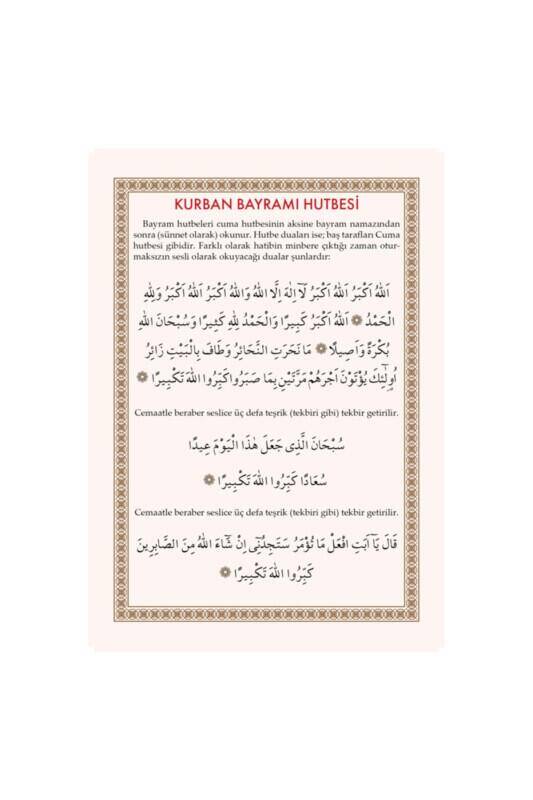 KURBAN BAYRAMI HUTBESİ
Bayram hutbeleri cuma hutbesinin aksine bayram namazından
sonra (sünnet olarak) okunur. Hutbe duaları ise; baş tarafları Cuma
hutbesi gibidir. Farklı olarak hatibin minbere çıktığı zaman otur-
maksızın sesli olarak okuyacağı dualar şunlardır:
اَللّٰهُ اَكْبَرُ اَللّٰهُ اَكْبَرُ لَآ اِلٰهَ اِلَّا اللّٰهُ وَاللّٰهُ اَكْبَرُ اَللّٰهُ اَكْبَرُ وَلِلّٰهِ
الْحَمْدُ ۞ اَللّٰهُ اَكْبَرُ كَبِيرًا وَالْحَمْدُ لِلّٰهِ كَثِيرًا وَسُبْحَانَ اللّٰهِ
بُكْرَةً وَاَصِيلًا ۞ مَا نَحَرَتِ النَّحَائِرُ وَطَافَ بِالْبَيْتِ زَائِرُ
اُولٰٓئِكَ يُؤْتَوْنَ اَجْرَهُمْ مَرَّتَيْنِ بِمَا صَبَرُوا كَبِّرُوا اللّٰهَ تَكْبِيرًا ۞
Cemaatle beraber seslice üç defa teşrik (tekbiri gibi) tekbir getirilir.
سُبْحَانَ الَّذِى جَعَلَ هٰذَا الْيَوْمَ عِيدًا
سُعَادًا كَبِّرُوا اللّٰهَ تَكْبِيرًا ۞
Cemaatle beraber seslice üç defa teşrik (tekbiri gibi) tekbir getirilir.
قَالَ يَٓا اَبَتِ افْعَلْ مَا تُؤْمَرُ سَتَجِدُنِٓى اِنْ شَٓاءَ اللّٰهُ مِنَ الصَّابِرِينَ
كَبِّرُوا اللّٰهَ تَكْبِيرًا ۞